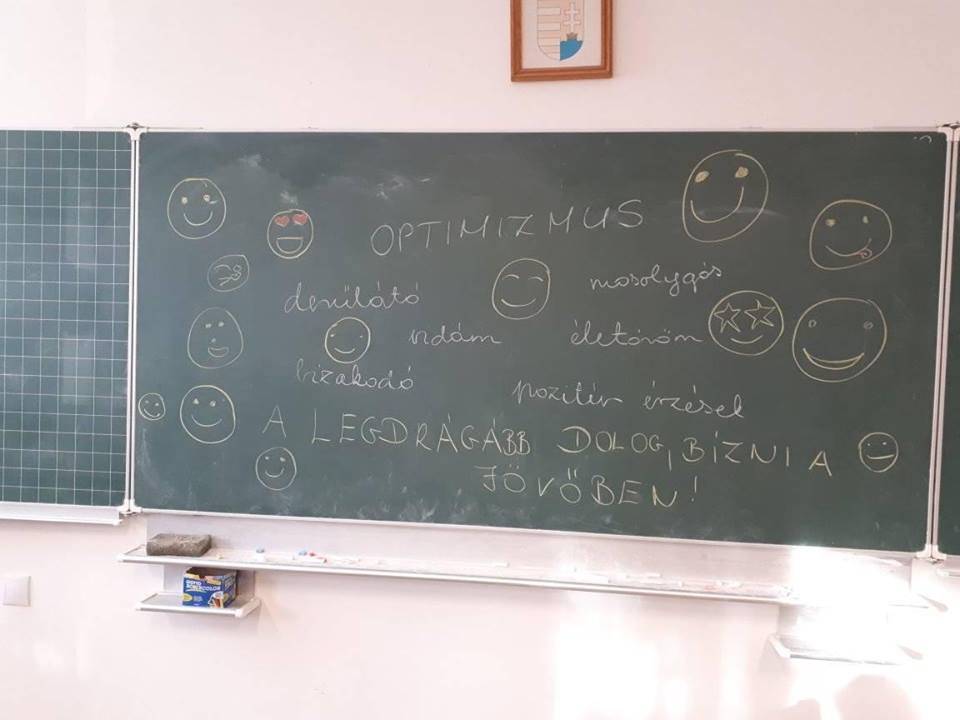 OPTIMIZMUS
derűlátó
mosolygós
vidám
életöröm
bizakodó
pozitív érzések
A LEGDRÁGÁBB DOLOG, BÍZNI A
JÖVŐBEN!